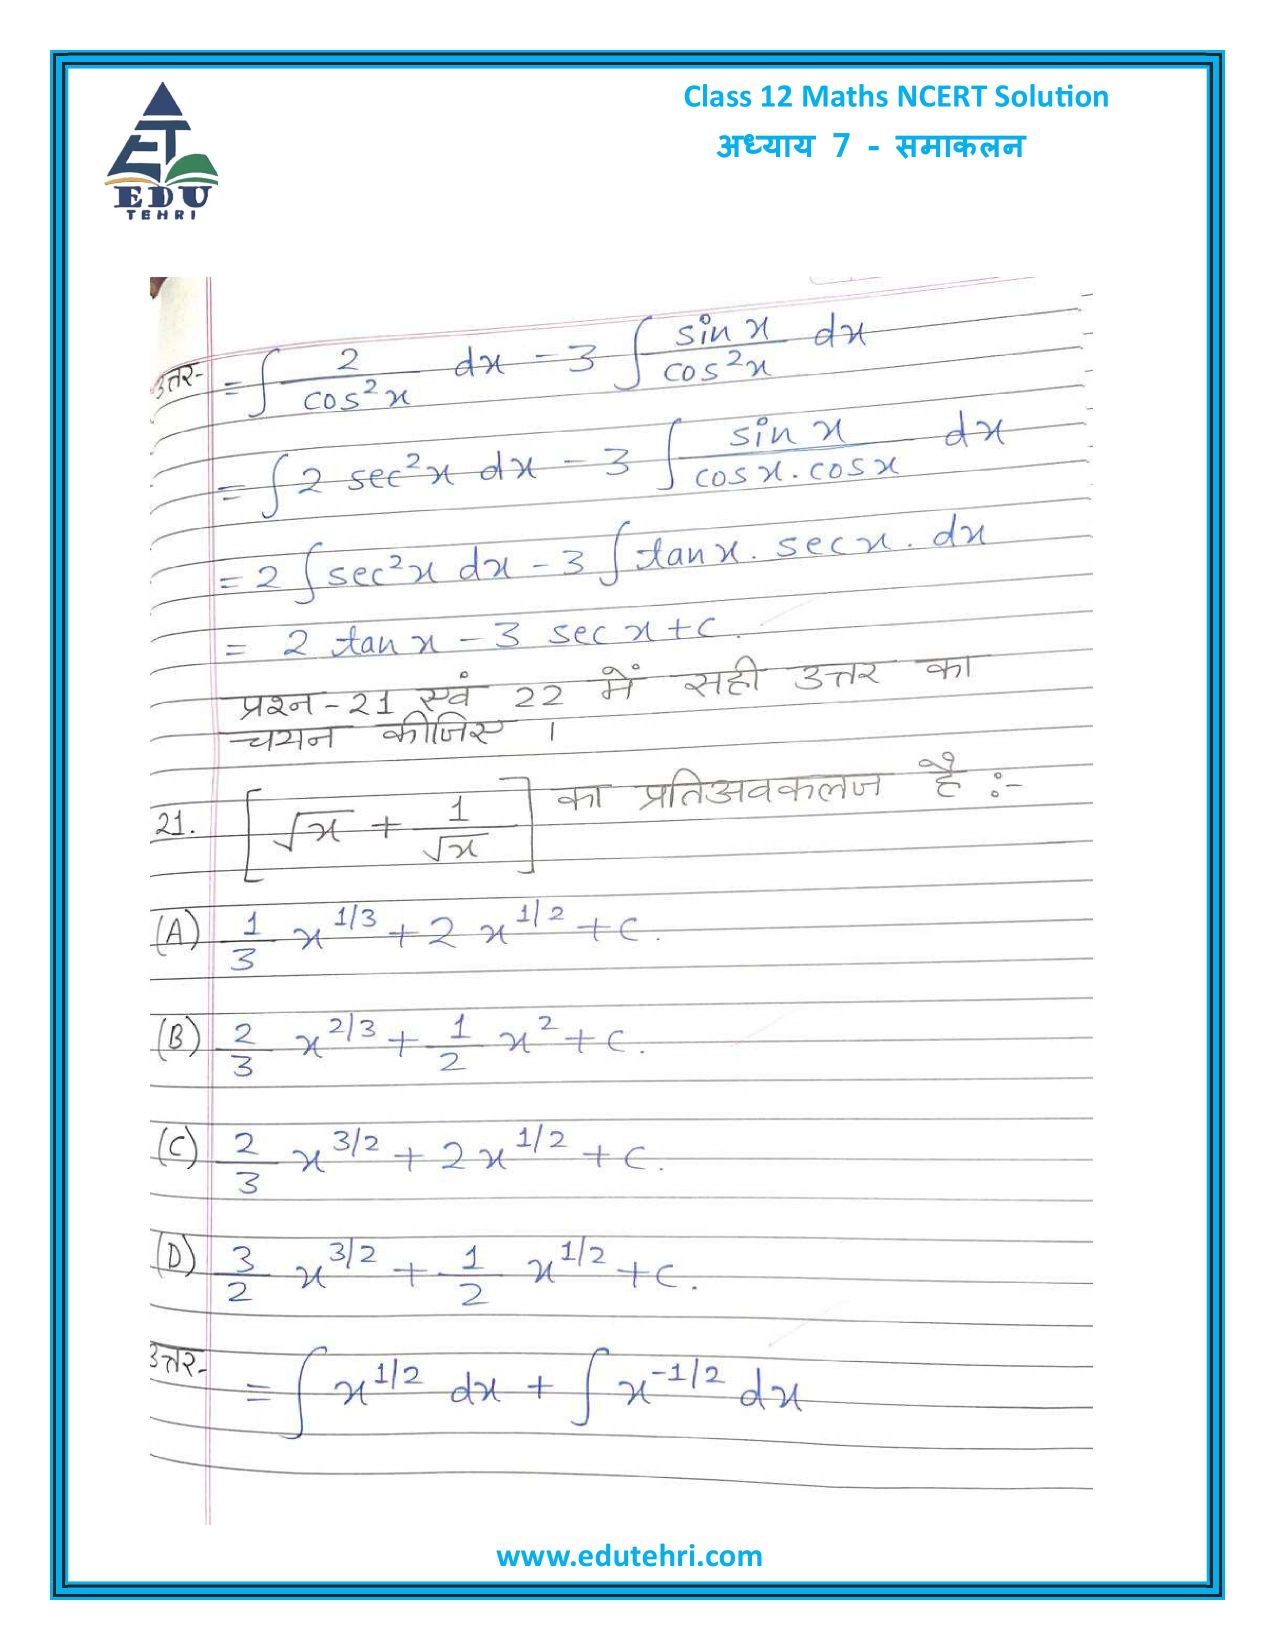 Class 12 Maths NCERT Solution
अध्याय 7 - समाकलन
EDU
TEHRI
उत्तर- = ∫ 2/cos²x dx - 3 ∫ sin x/cos²x dx
= ∫ 2 sec²x dx - 3 ∫ sin x/cos x . cos x dx
= 2 ∫ sec²x dx - 3 ∫ tan x . sec x . dx
= 2 tan x - 3 sec x + c.
प्रश्न-21 एवं 22 में सही उत्तर का
चयन कीजिए ।
21. [√x + 1/√x] का प्रतिअवकलज है :-
(A) 1/3 x^1/3 + 2 x^1/2 + c.
(B) 2/3 x^2/3 + 1/2 x² + c.
(C) 2/3 x^3/2 + 2x^1/2 + c.
(D) 3/2 x^3/2 + 1/2 x^1/2 + c.
उत्तर- = ∫ x^1/2 dx + ∫ x^-1/2 dx
www.edutehri.com